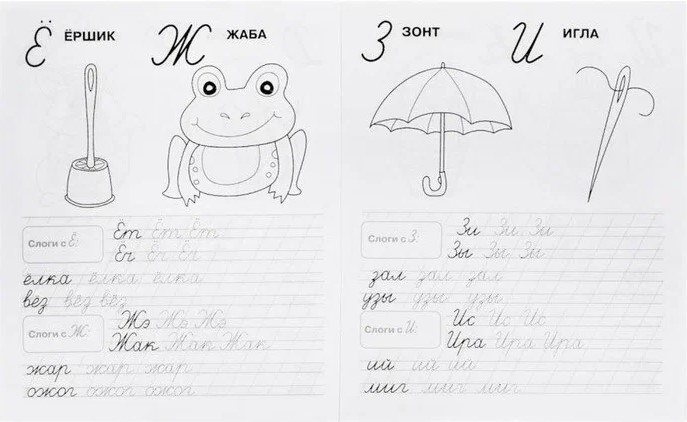 Ё ЁРШИК
Ж ЖАБА
Слоги с Ё:
Ёт Ёт Ёт
Ёг Ёг Ёг
ёлка ёлка ёлка
вёз вёз вёз
Слоги с Ж:
Жэ Жэ Жэ
Жак Жак Жак
жар жар жар
ожог ожог ожог
З ЗОНТ
И ИГЛА
Слоги с З:
Зи Зи Зи
Зы Зы Зы
зал зал зал
узы узы узы
Слоги с И:
Ис Ис Ис
Ира Ира Ира
ий
миг миг миг